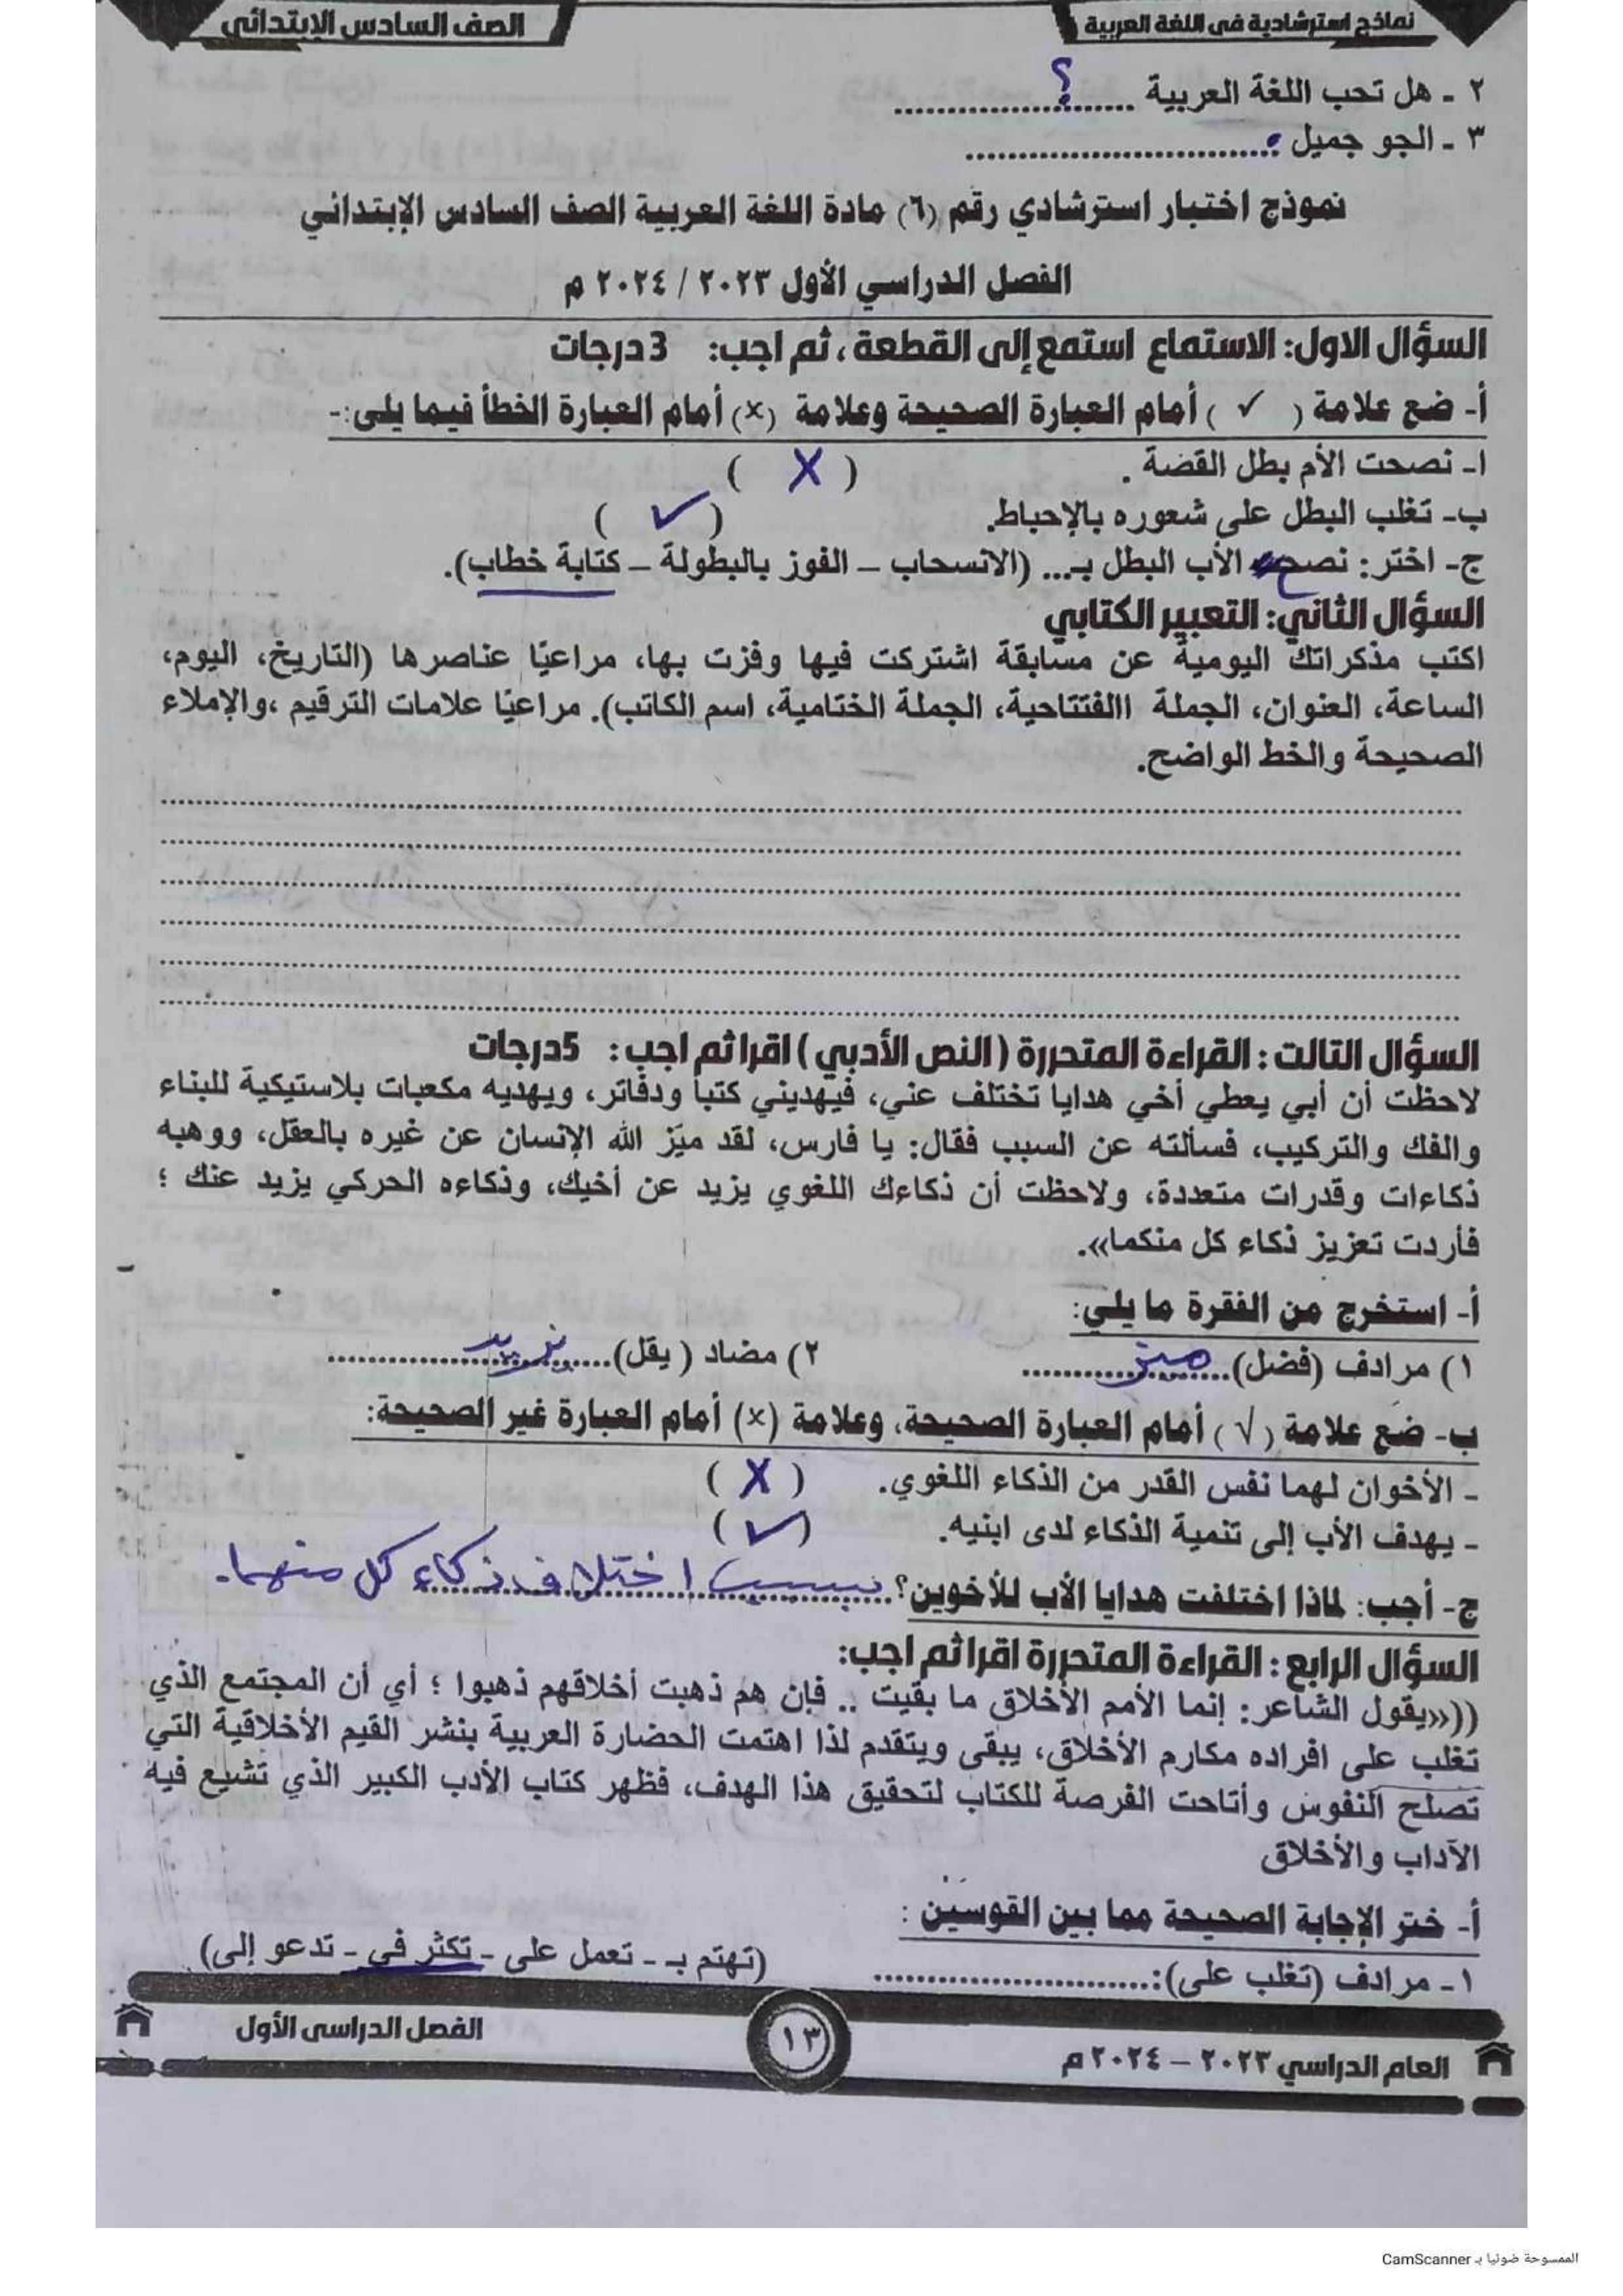 نماذج استرشادية فى اللغة العربية
الصف السادس الإبتدائى
٢ - هل تحب اللغة العربية ........؟............
٣ - الجو جميل ...............................
نموذج اختبار استرشادي رقم (٦) مادة اللغة العربية الصف السادس الإبتدائي
الفصل الدراسي الأول ٢٠٢٣ / ٢٠٢٤ م
السؤال الاول: الاستماع استمع إلى القطعة ، ثم اجب: 3 درجات
أ- ضع علامة ( ✓ ) أمام العبارة الصحيحة وعلامة (×) أمام العبارة الخطأ فيما يلى:-
ا- نصحت الأم بطل القضة . ( X )
ب- تغلب البطل على شعوره بالإحباط. ( ✓ )
ج- اختر: نصح الأب البطل بـ... (الانسحاب – الفوز بالبطولة – كتابة خطاب).
السؤال الثاني: التعبير الكتابي
اكتب مذكراتك اليومية عن مسابقة اشتركت فيها وفزت بها، مراعيًا عناصرها (التاريخ، اليوم،
الساعة، العنوان، الجملة االفتتاحية، الجملة الختامية، اسم الكاتب). مراعيًا علامات الترقيم ،والإملاء
الصحيحة والخط الواضح.
السؤال التالت : القراءة المتحررة ( النص الأدبي ) اقرا ثم اجب : 5درجات
لاحظت أن أبي يعطي أخي هدايا تختلف عني، فيهديني كتبا ودفاتر، ويهديه مكعبات بلاستيكية للبناء
والفك والتركيب، فسألته عن السبب فقال: يا فارس، لقد ميّز الله الإنسان عن غيره بالعقل، ووهبه
ذكاءات وقدرات متعددة، ولاحظت أن ذكاءك اللغوي يزيد عن أخيك، وذكاءه الحركي يزيد عنك ؛
فأردت تعزيز ذكاء كل منكما».
أ- استخرج من الفقرة ما يلي:
١) مرادف (فضل)....ميز........ ٢) مضاد ( يقل).....يزيد..........
ب- ضع علامة (√ ) أمام العبارة الصحيحة، وعلامة (×) أمام العبارة غير الصحيحة:
- الأخوان لهما نفس القدر من الذكاء اللغوي. ( X )
- يهدف الأب إلى تنمية الذكاء لدى ابنيه. ( ✓ )
ج- أجب: لماذا اختلفت هدايا الأب للأخوين؟ بسبب اختلاف ذكاء كل منهما.
السؤال الرابع : القراءة المتحررة اقرا ثم اجب:
((«يقول الشاعر: إنما الأمم الأخلاق ما بقيت .. فإن هم ذهبت أخلاقهم ذهبوا ؛ أي أن المجتمع الذي
تغلب على افراده مكارم الأخلاق، يبقى ويتقدم لذا اهتمت الحضارة العربية بنشر القيم الأخلاقية التي
تصلح النفوس وأتاحت الفرصة للكتاب لتحقيق هذا الهدف، فظهر كتاب الأدب الكبير الذي تشيع فيه
الآداب والأخلاق
أ- ختر الإجابة الصحيحة مما بين القوسين :
١ - مرادف (تغلب على):........................... (تهتم بـ - تعمل على - تكثر في - تدعو إلى)
العام الدراسي ٢٠٢٣ – ٢٠٢٤م
١٣
الفصل الدراسى الأول
الممسوحة ضوئيا بـ CamScanner